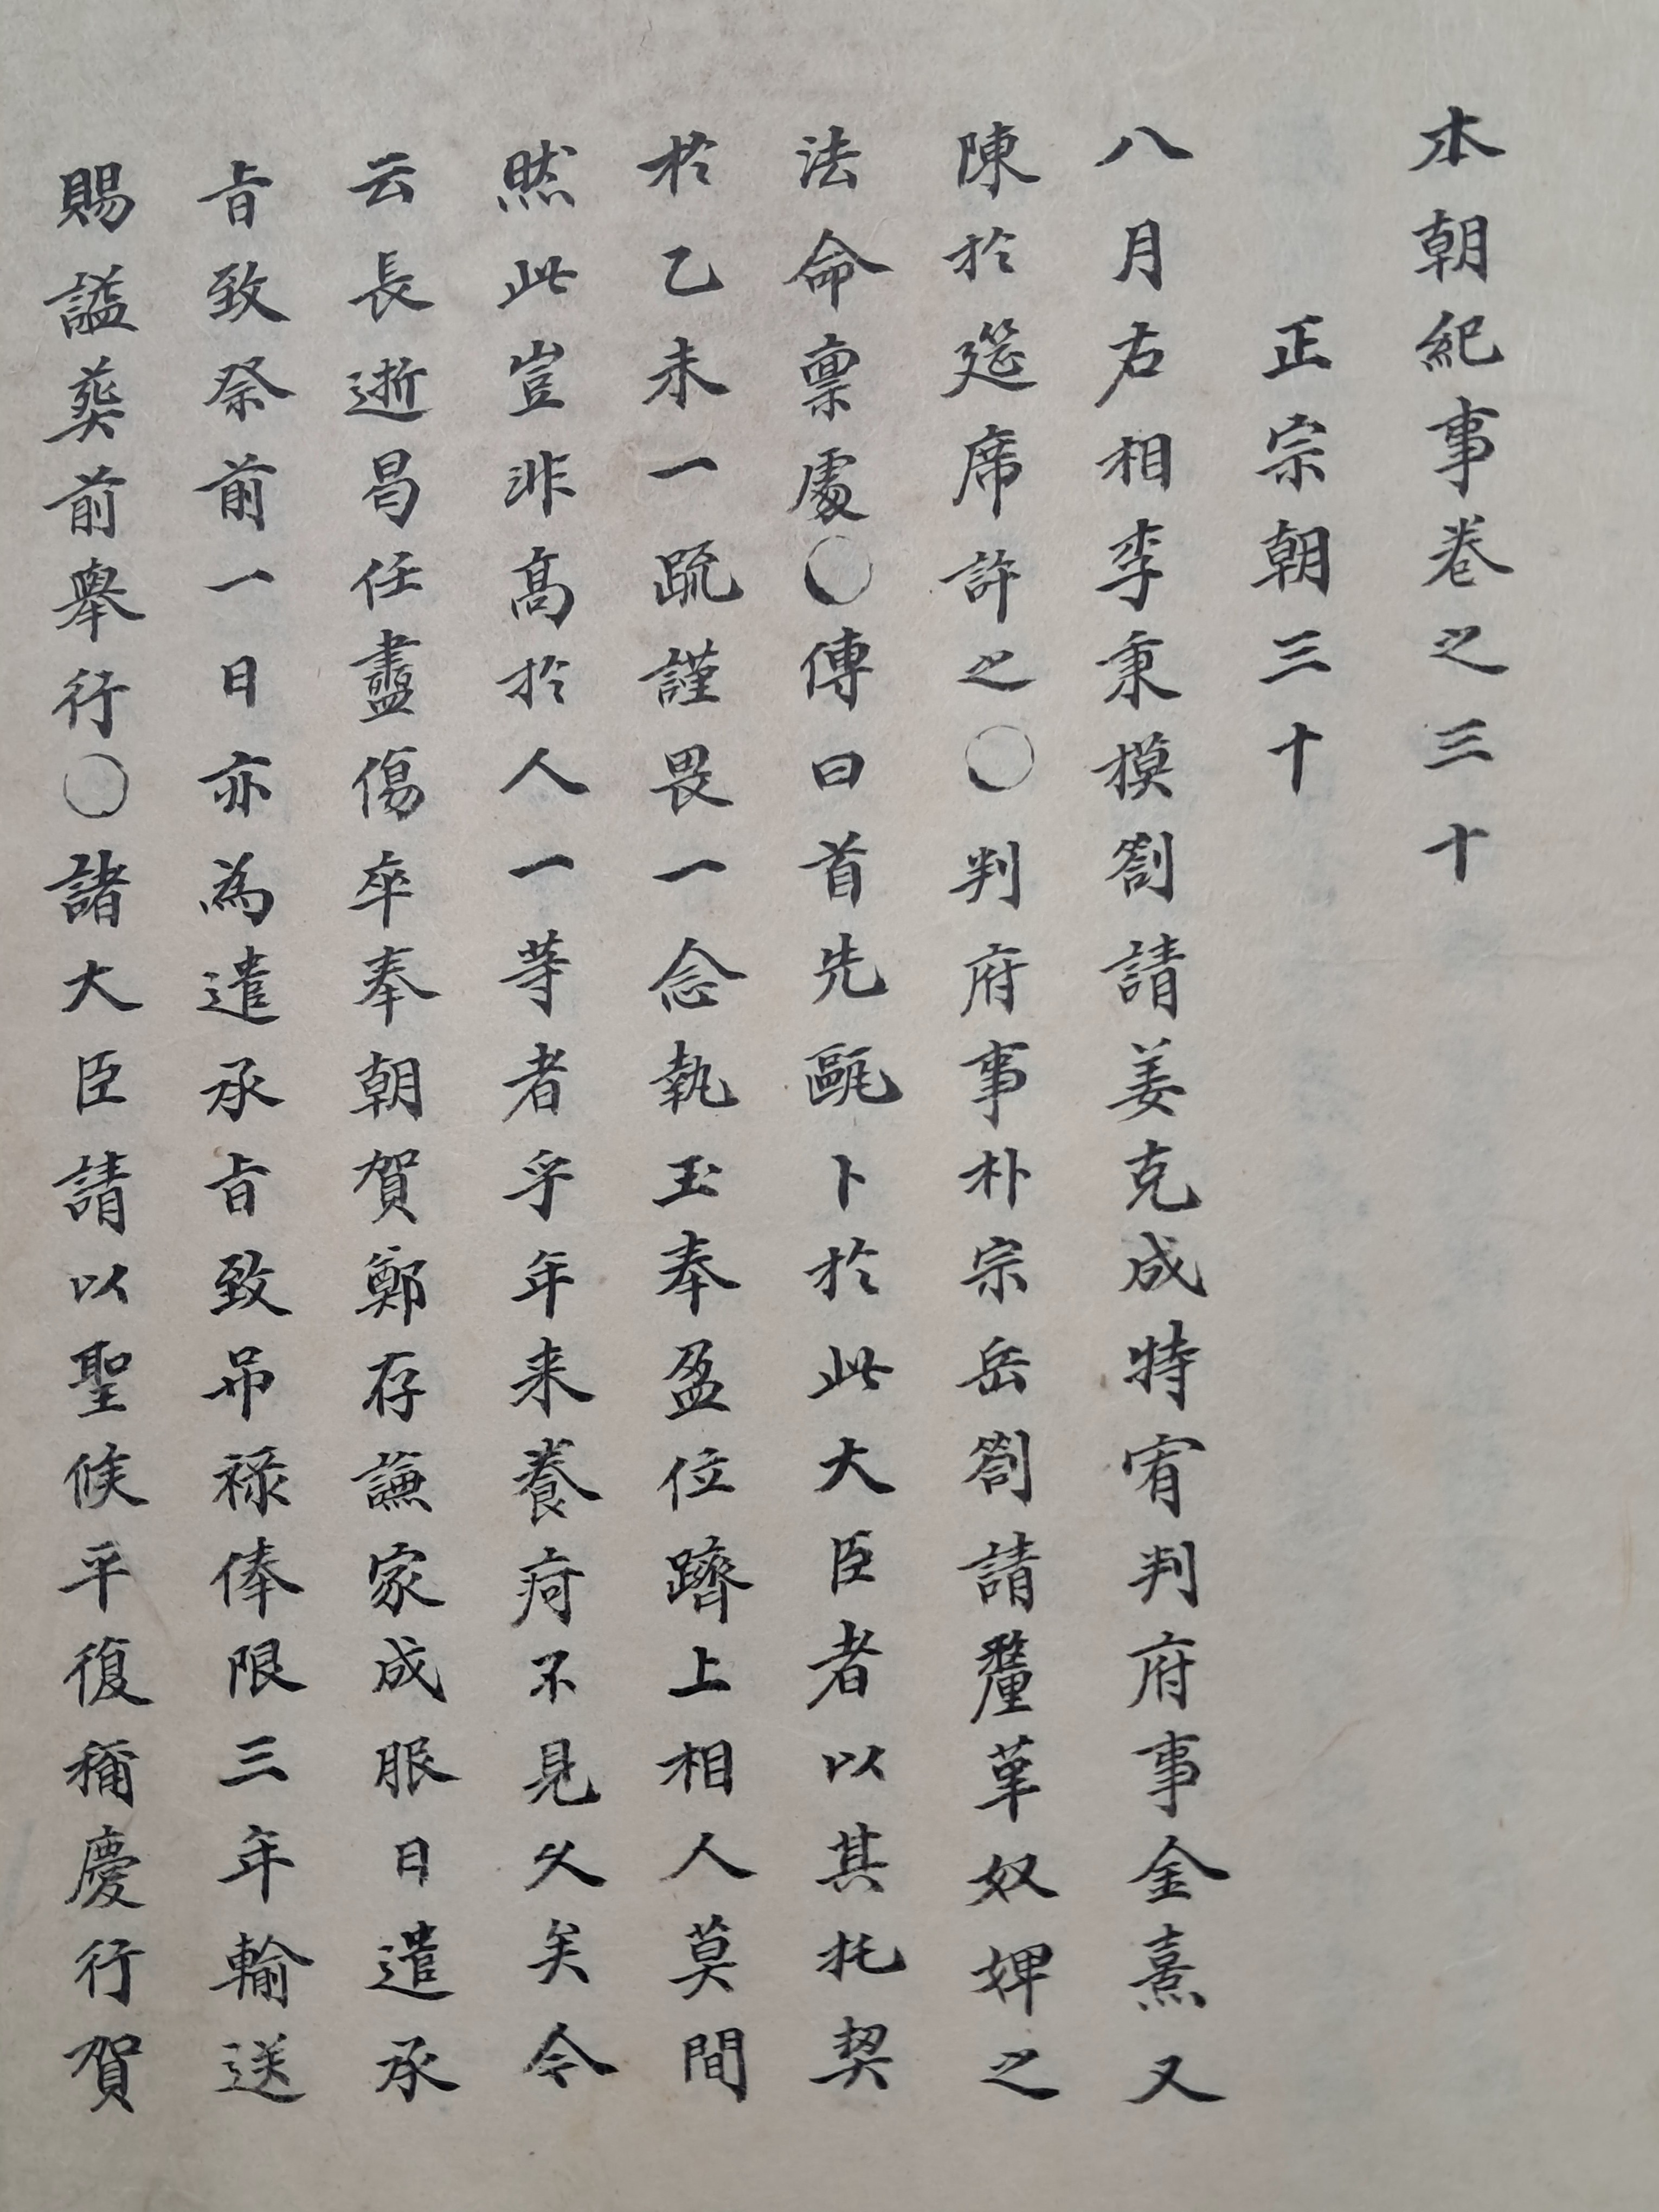 本朝紀事卷之三十
正宗朝三十
八月右相李秉模劄請姜克成特宥判府事金熹又
陳於筵席許之○判府事朴宗岳劄請釐革奴婢之
法命禀處○傳曰首先甌卜於此大臣者以其托契
於乙未一疏謹畏一念執玉奉盈位躋上相人莫間
然此豈非高於人一等者乎年来養疴不見久矣今
云長逝曷任盡傷卒奉朝賀鄭存謙家成服日遣承
旨致祭前一日亦為遣承旨致吊禄俸限三年輸送
賜謚葬前舉行○諸大臣請以聖候平復稱慶行賀